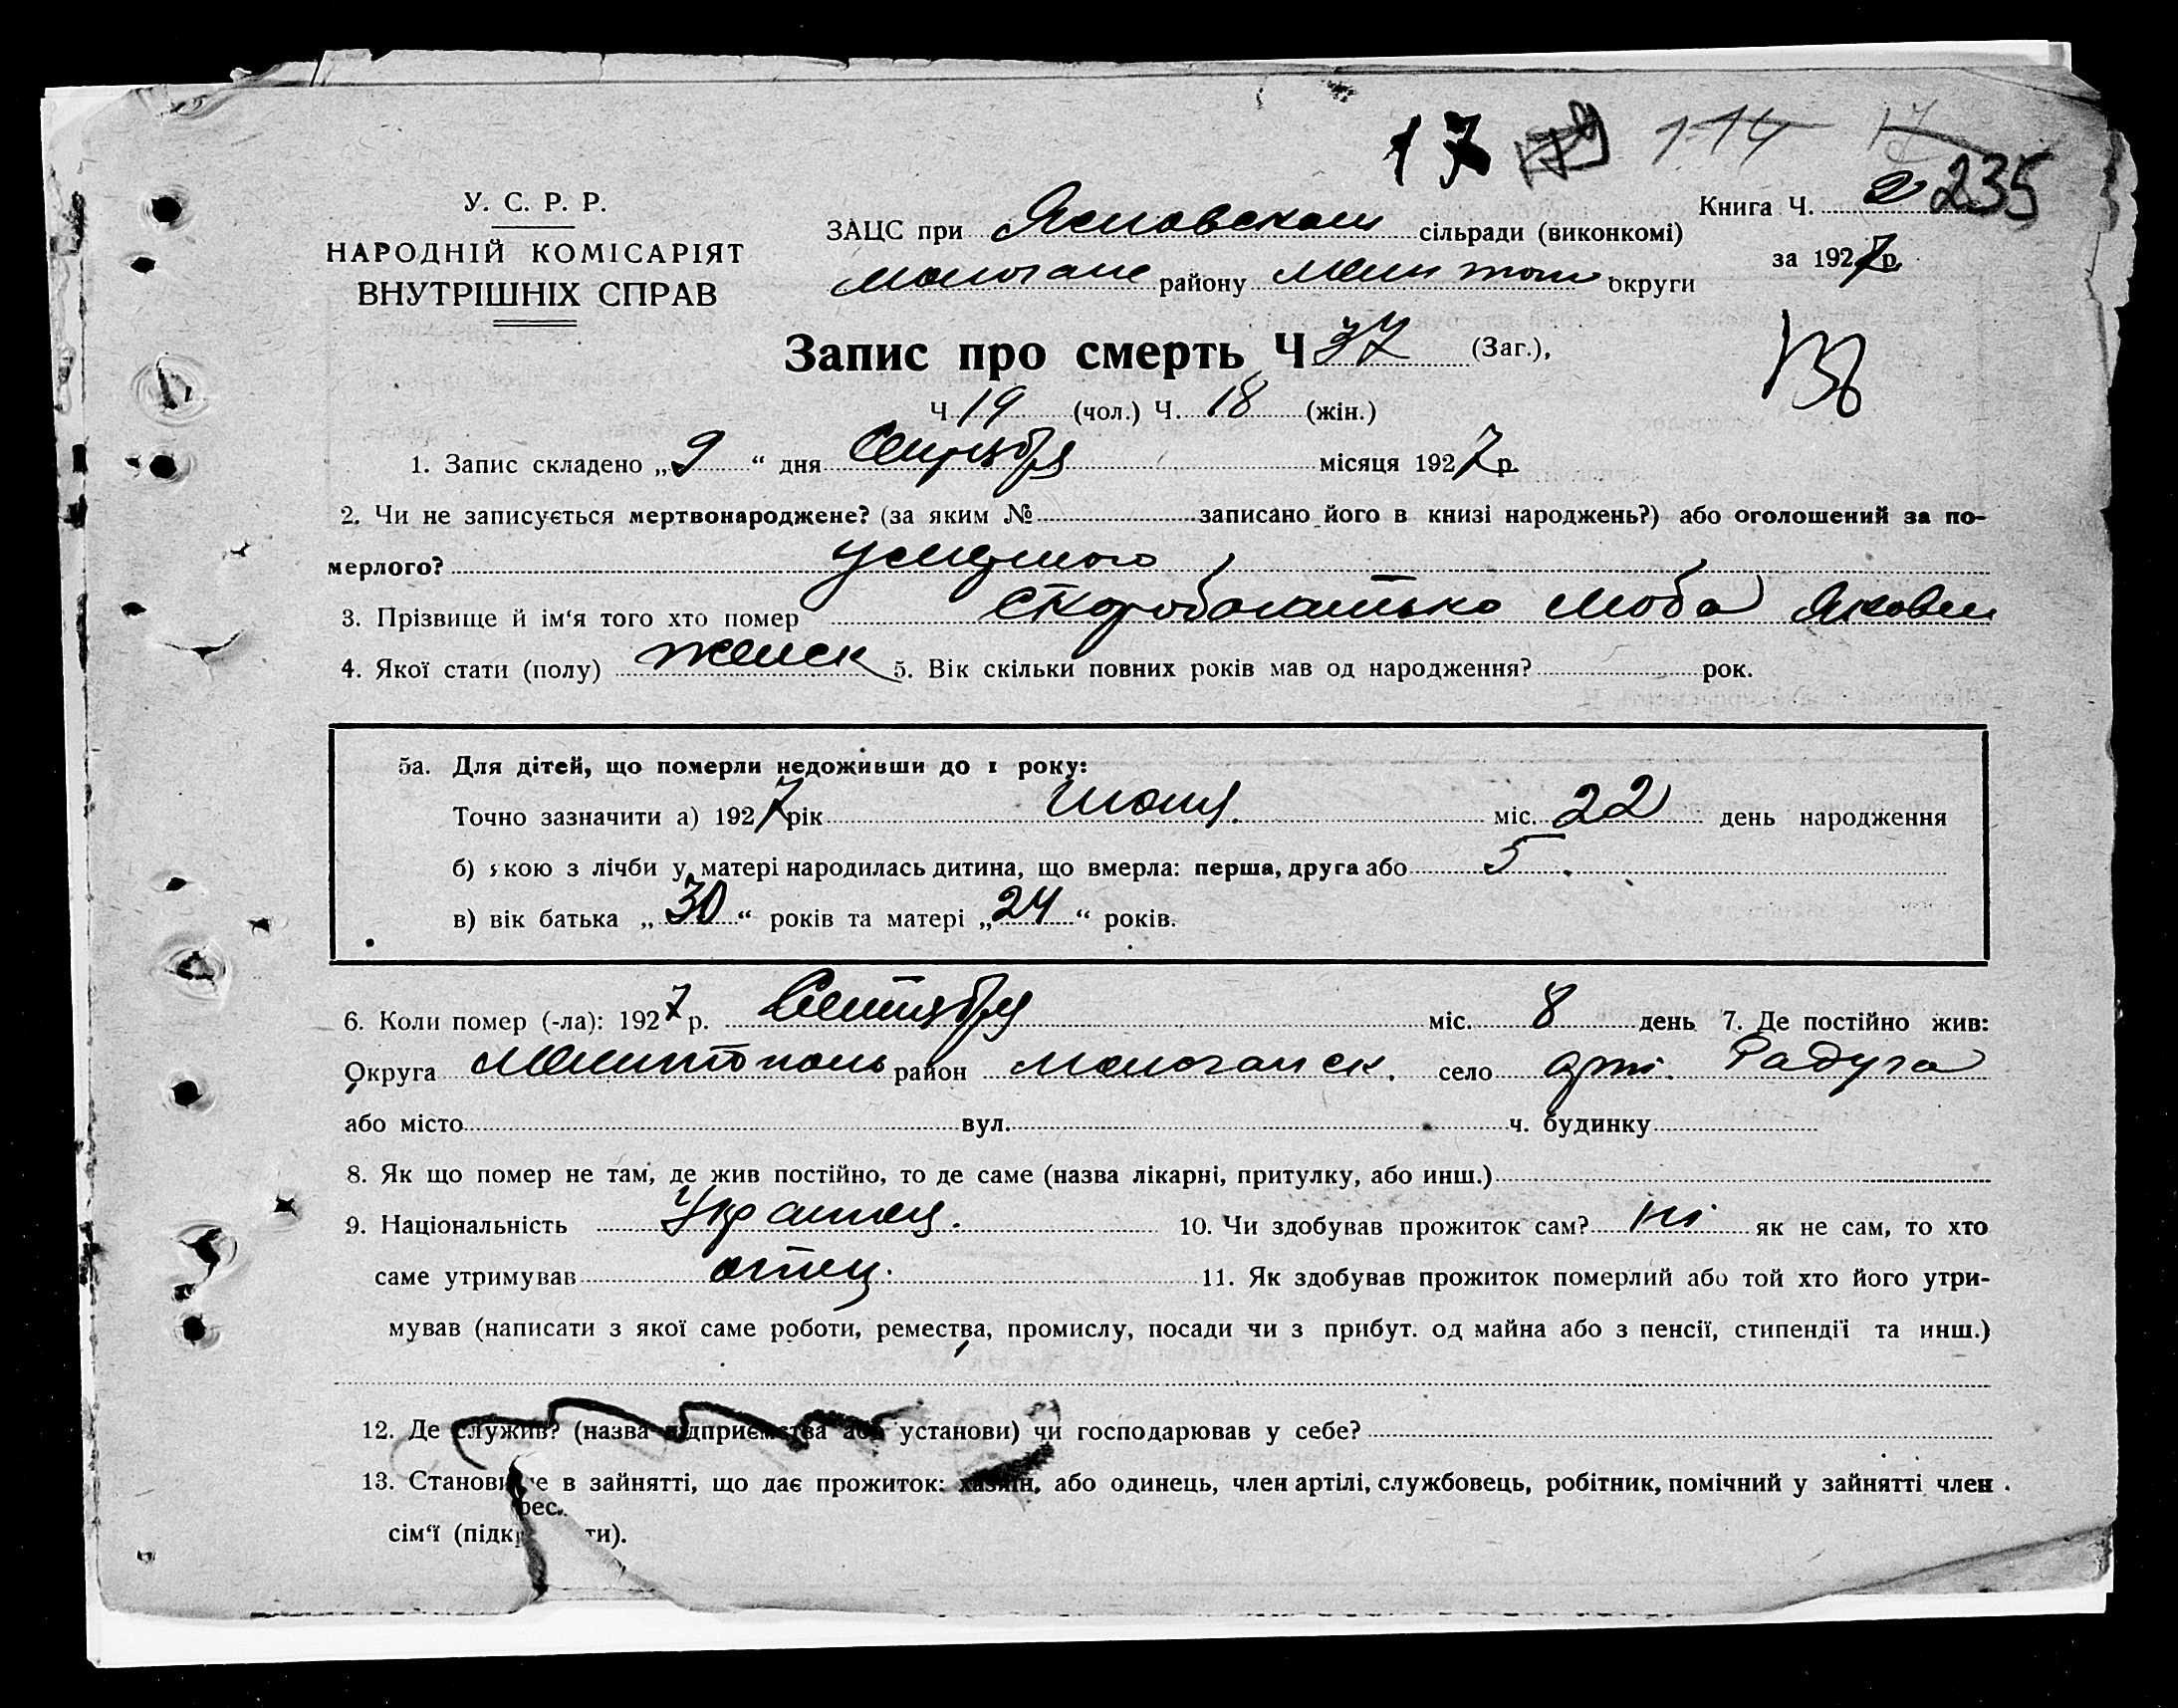 17 114 17
У. С. Р. Р.
НАРОДНІЙ КОМІСАРІЯТ
ВНУТРІШНІХ СПРАВ
ЗАЦС при сільради (виконкомі)
району округи
Книга Ч. 2 235
за 1927 р.
Запис про смерть Ч 37 (Заг.),
Ч 19 (чол.) Ч. 18 (жін.)
136
1. Запис складено „ 9 “ дня Сентября місяця 1927 р.
2. Чи не записується мертвонароджене? (за яким № записано його в книзі народжень?) або оголошений за по-
мерлого? умершого
3. Прізвище й ім‘я того хто помер Скоробогатько Люба Яковл
4. Якої стати (полу) женск 5. Вік скільки повних років мав од народження? рок.
5а. Для дітей, що померли недоживши до 1 року:
Точно зазначити а) 1927 рік міс. 22 день народження
б) якою з лічби у матері народилась дитина, що вмерла: перша, друга або 5
в) вік батька „ 30 “ років та матері „ 24 “ років.
6. Коли помер (-ла): 1927 р. Сентября міс. 8 день 7. Де постійно жив:
Округа Мелитополь район село арт. Радуга
або місто вул. ч. будинку
8. Як що помер не там, де жив постійно, то де саме (назва лікарні, притулку, або инш.)
9. Національність 10. Чи здобував прожиток сам? ні як не сам, то хто
саме утримував отец. 11. Як здобував прожиток померлий або той хто його утри-
мував (написати з якої саме роботи, ремества, промислу, посади чи з прибут. од майна або з пенсії, стипендії та инш.)
12. Де служив? (назва підприємства або установи) чи господарював у себе?
13. Становище в зайнятті, що дає прожиток: хазяїн, або одинець, член артілі, службовець, робітник, помічний у зайнятті член
сім‘ї (підкр ти).